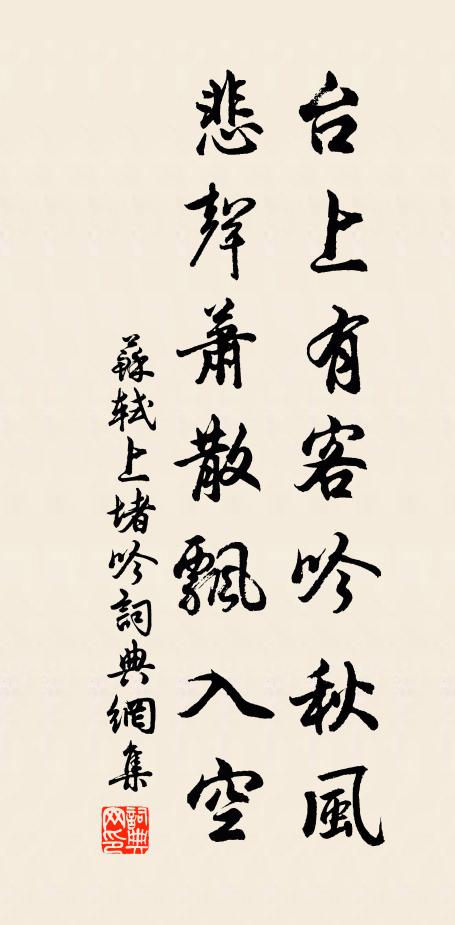 台上有客吟秋風
悲聲蕭散飄入空
蘇軾上堵吟詞典網集
詞典
网印